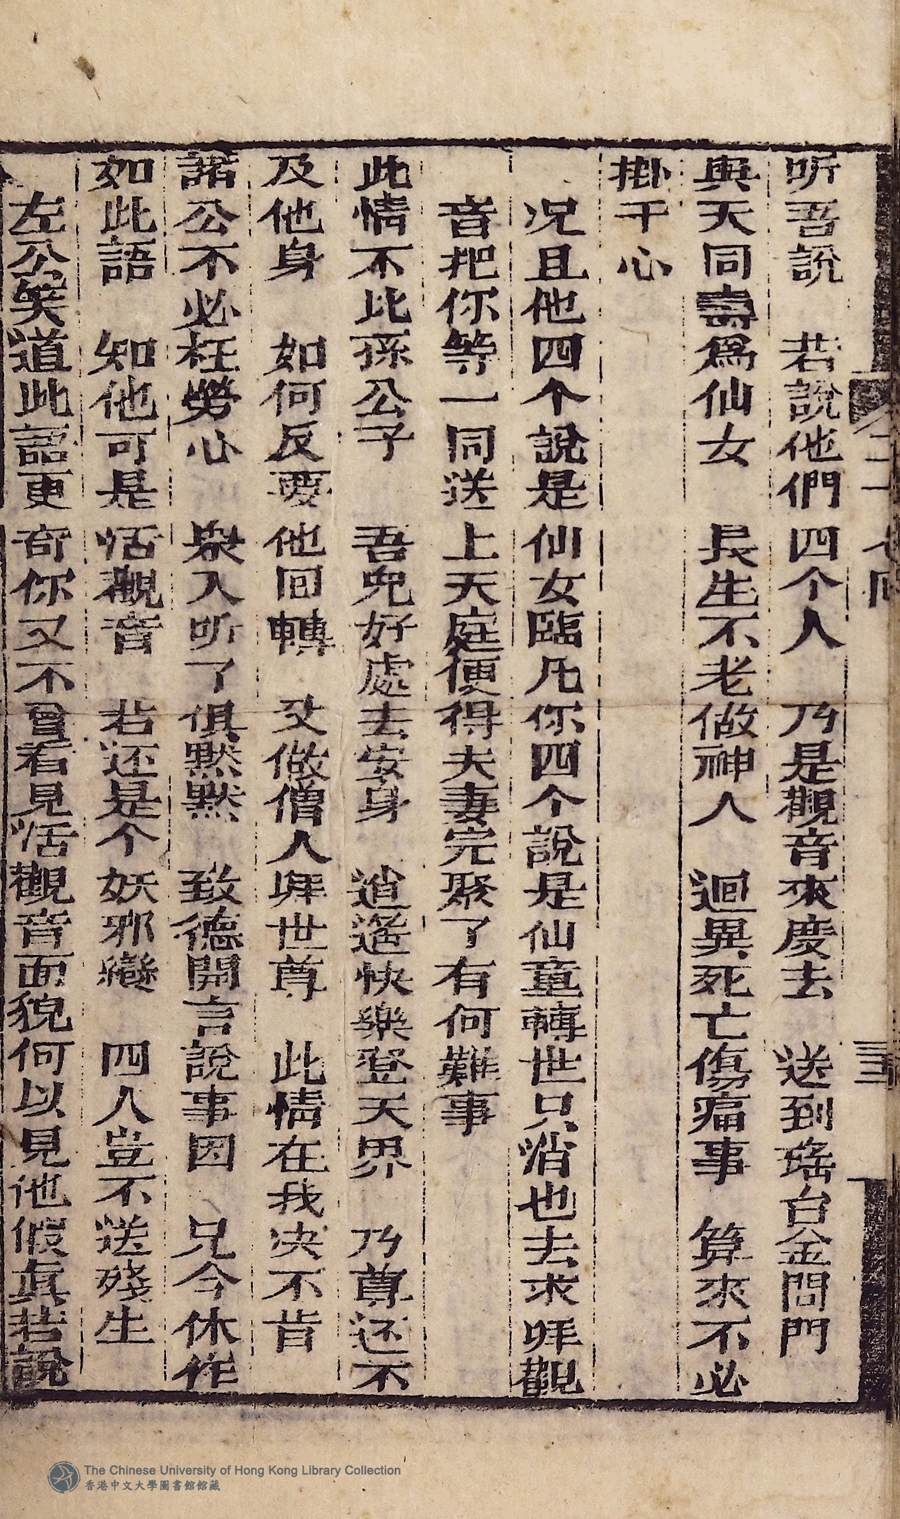 二十七回
听吾說　若說他們四个人　乃是觀音來慶去　送到瑤台金問門
與天同壽爲仙女　長生不老做神人　迴異死亡傷痛事　算來不必
掛干心
况且他四个說是仙女臨凡你四个說是仙童轉世只消也去求拜觀
音把你等一同送上天庭便得夫妻完聚了有何難事
此情不比孫公子　吾兒好處去安身　逍遥快樂登天界　乃尊还不
及他身　如何反要他回轉　又做僧人拜世尊　此情在我决不肯
諸公不必枉勞心　衆人听了俱黙黙　致德開言說事因　兄今休作
如此語　知他可是活觀音　若还是个妖邪變　四人豈不送殘生
左公笑道此語更奇你又不曾看見活觀音面貌何以見他假真若說
The Chinese University of Hong Kong Library Collection
香港中文大學圖書館館藏